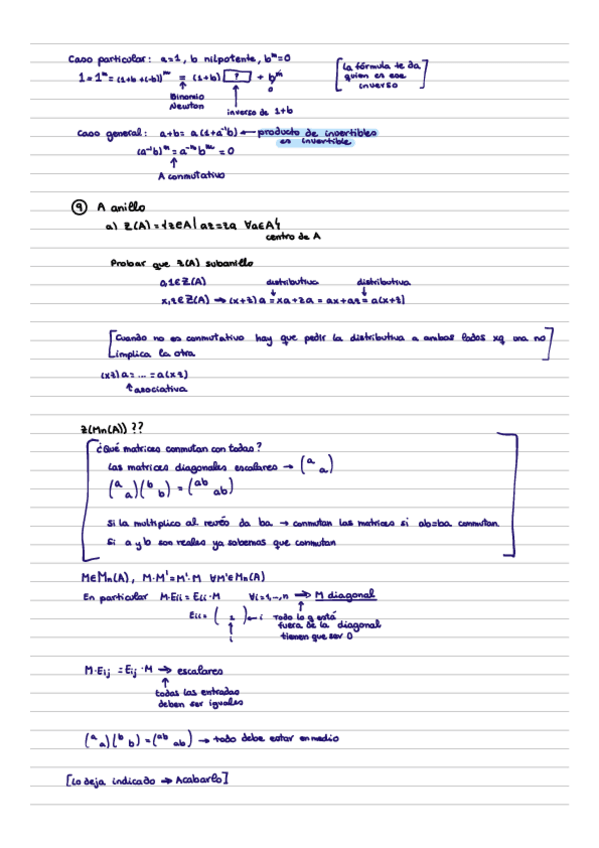 Caso particular: a=1, b nilpotente, bᵐ=0
1=1ᵐ=(1+b+(-b))ᵐ = (1+b) [?] + bᵐ
[La fórmula te da quien es ese inverso]
0
Binomio Newton
inverso de 1+b
Caso general: a+b= a(1+a⁻¹b) ← producto de invertibles es invertible
(a⁻¹b)ᵐ = a⁻ᵐbᵐ = 0
A conmutativo
⑨ A anillo
a) Z(A)={z∈A| az=za ∀a∈A}
centro de A
Probar que Z(A) subanillo
0,1∈Z(A) distributiva distributiva
x,z∈Z(A) → (x+z)a = xa+za = ax+az = a(x+z)
[Cuando no es conmutativo hay que pedir la distributiva a ambos lados xq una no
implica la otra]
(xz)a=...=a(xz)
↑ asociativa
Z(Mn(A))??
¿Qué matrices conmutan con todas?
Las matrices diagonales escalares → (a a)
(a a)(b b) = (ab ab)
Si la multiplico al revés da ba → conmutan las matrices si ab=ba conmutan
Si a y b son reales ya sabemos que conmutan
M∈Mn(A), M·M'=M'·M ∀M'∈Mn(A)
En particular M·Eii=Eii·M ∀i=1,...,n → M diagonal
Eii= ( 1 ) ← i Todo lo q está
fuera de la diagonal
i tienen que ser 0
M·Eij = Eij·M → escalares
todas las entradas
deben ser iguales
(a a)(b b)=(ab ab) → todo debe estar en medio
[Lo deja indicado → Acabarlo]